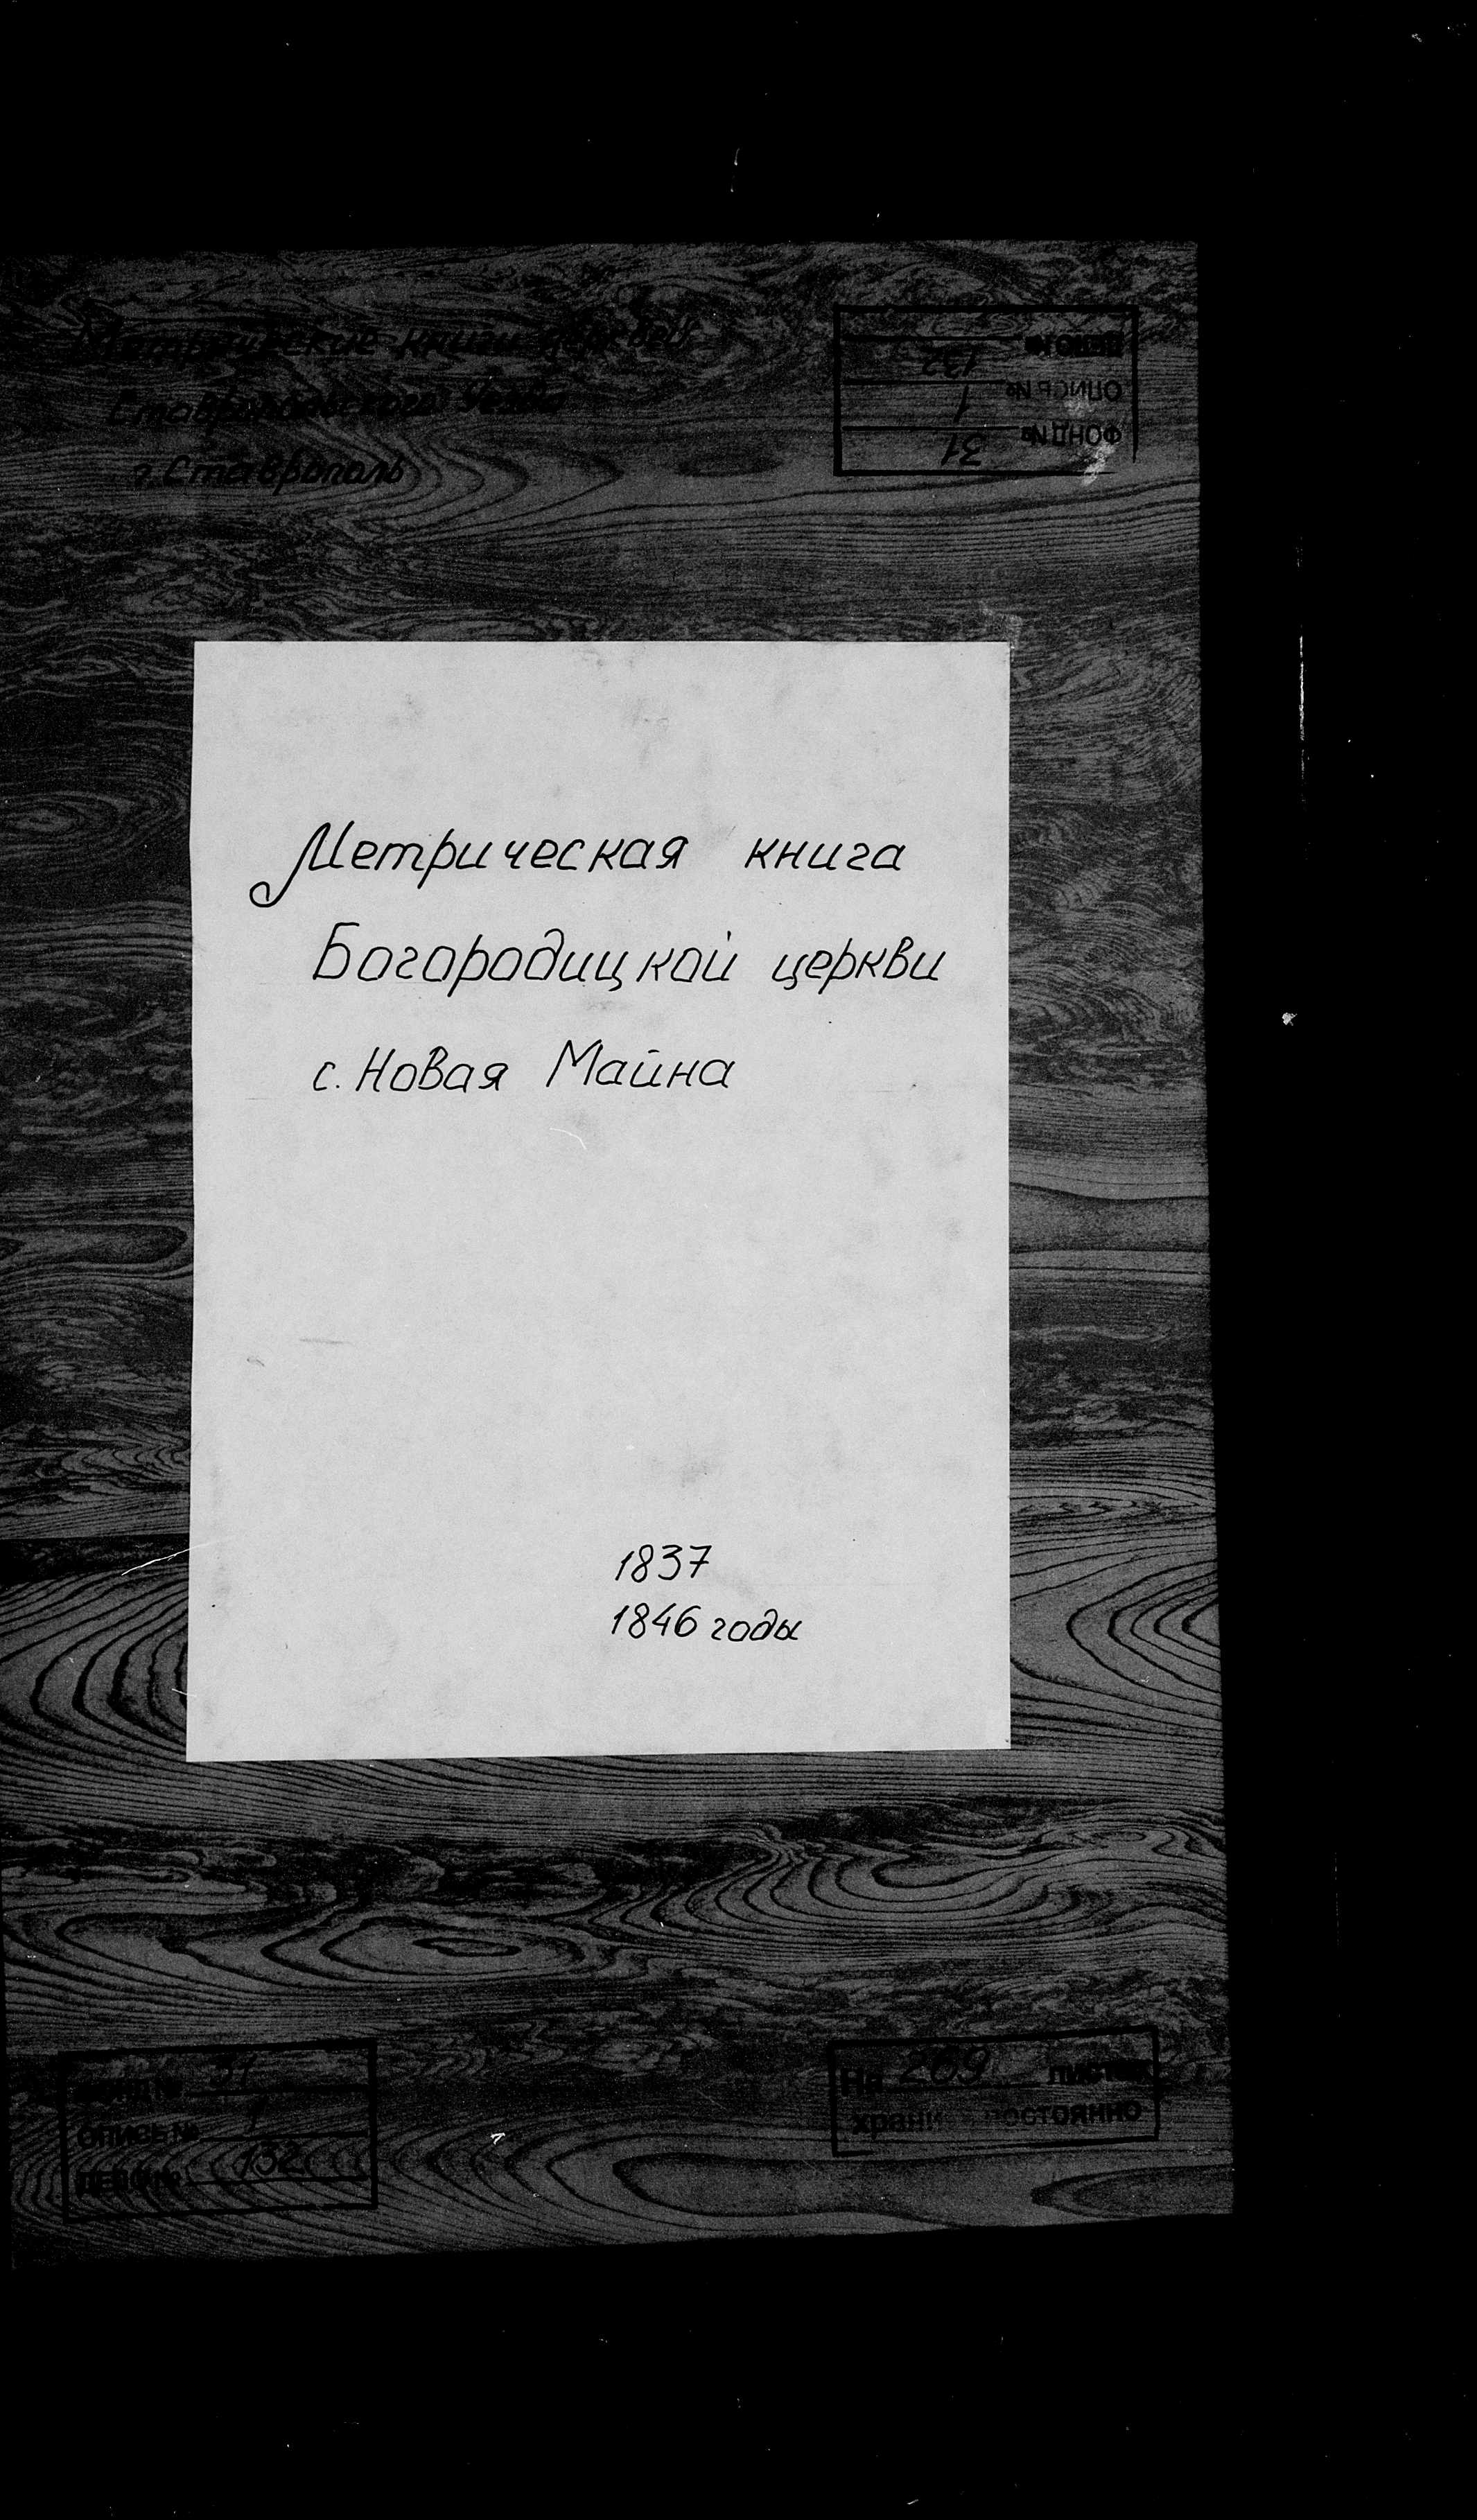 Метрические книги церквей
Ставропольского уезда
г. Ставрополь
ФОНД № 31
ОПИСЬ № 1
ДЕЛО № 132
Метрическая книга
Богородицкой церкви
с. Новая Майна
1837
1846 годы
ФОНД № 31
ОПИСЬ № 1
ДЕЛО № 132
На 269 листах
хранить постоянно